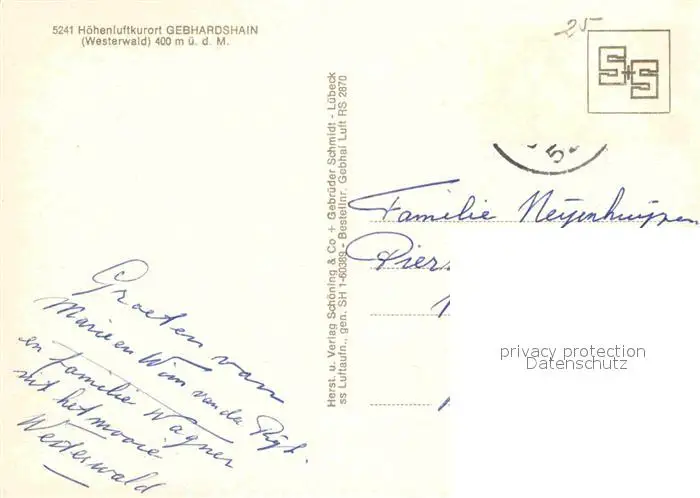 5241 Höhenluftkurort GEBHARDSHAIN
(Westerwald) 400 m ü. d. M.
25
S+S
5
Herst. u. Verlag Schöning & Co + Gebrüder Schmidt - Lübeck
ss Luftaufn., gen. SH 1-60389 - Bestellnr. Gebhai Luft RS 2870
Familie
Pier
Groeten van
Marie en Wim van der
en familie Wagner
uit het mooie
Westerwald
privacy protection
Datenschutz